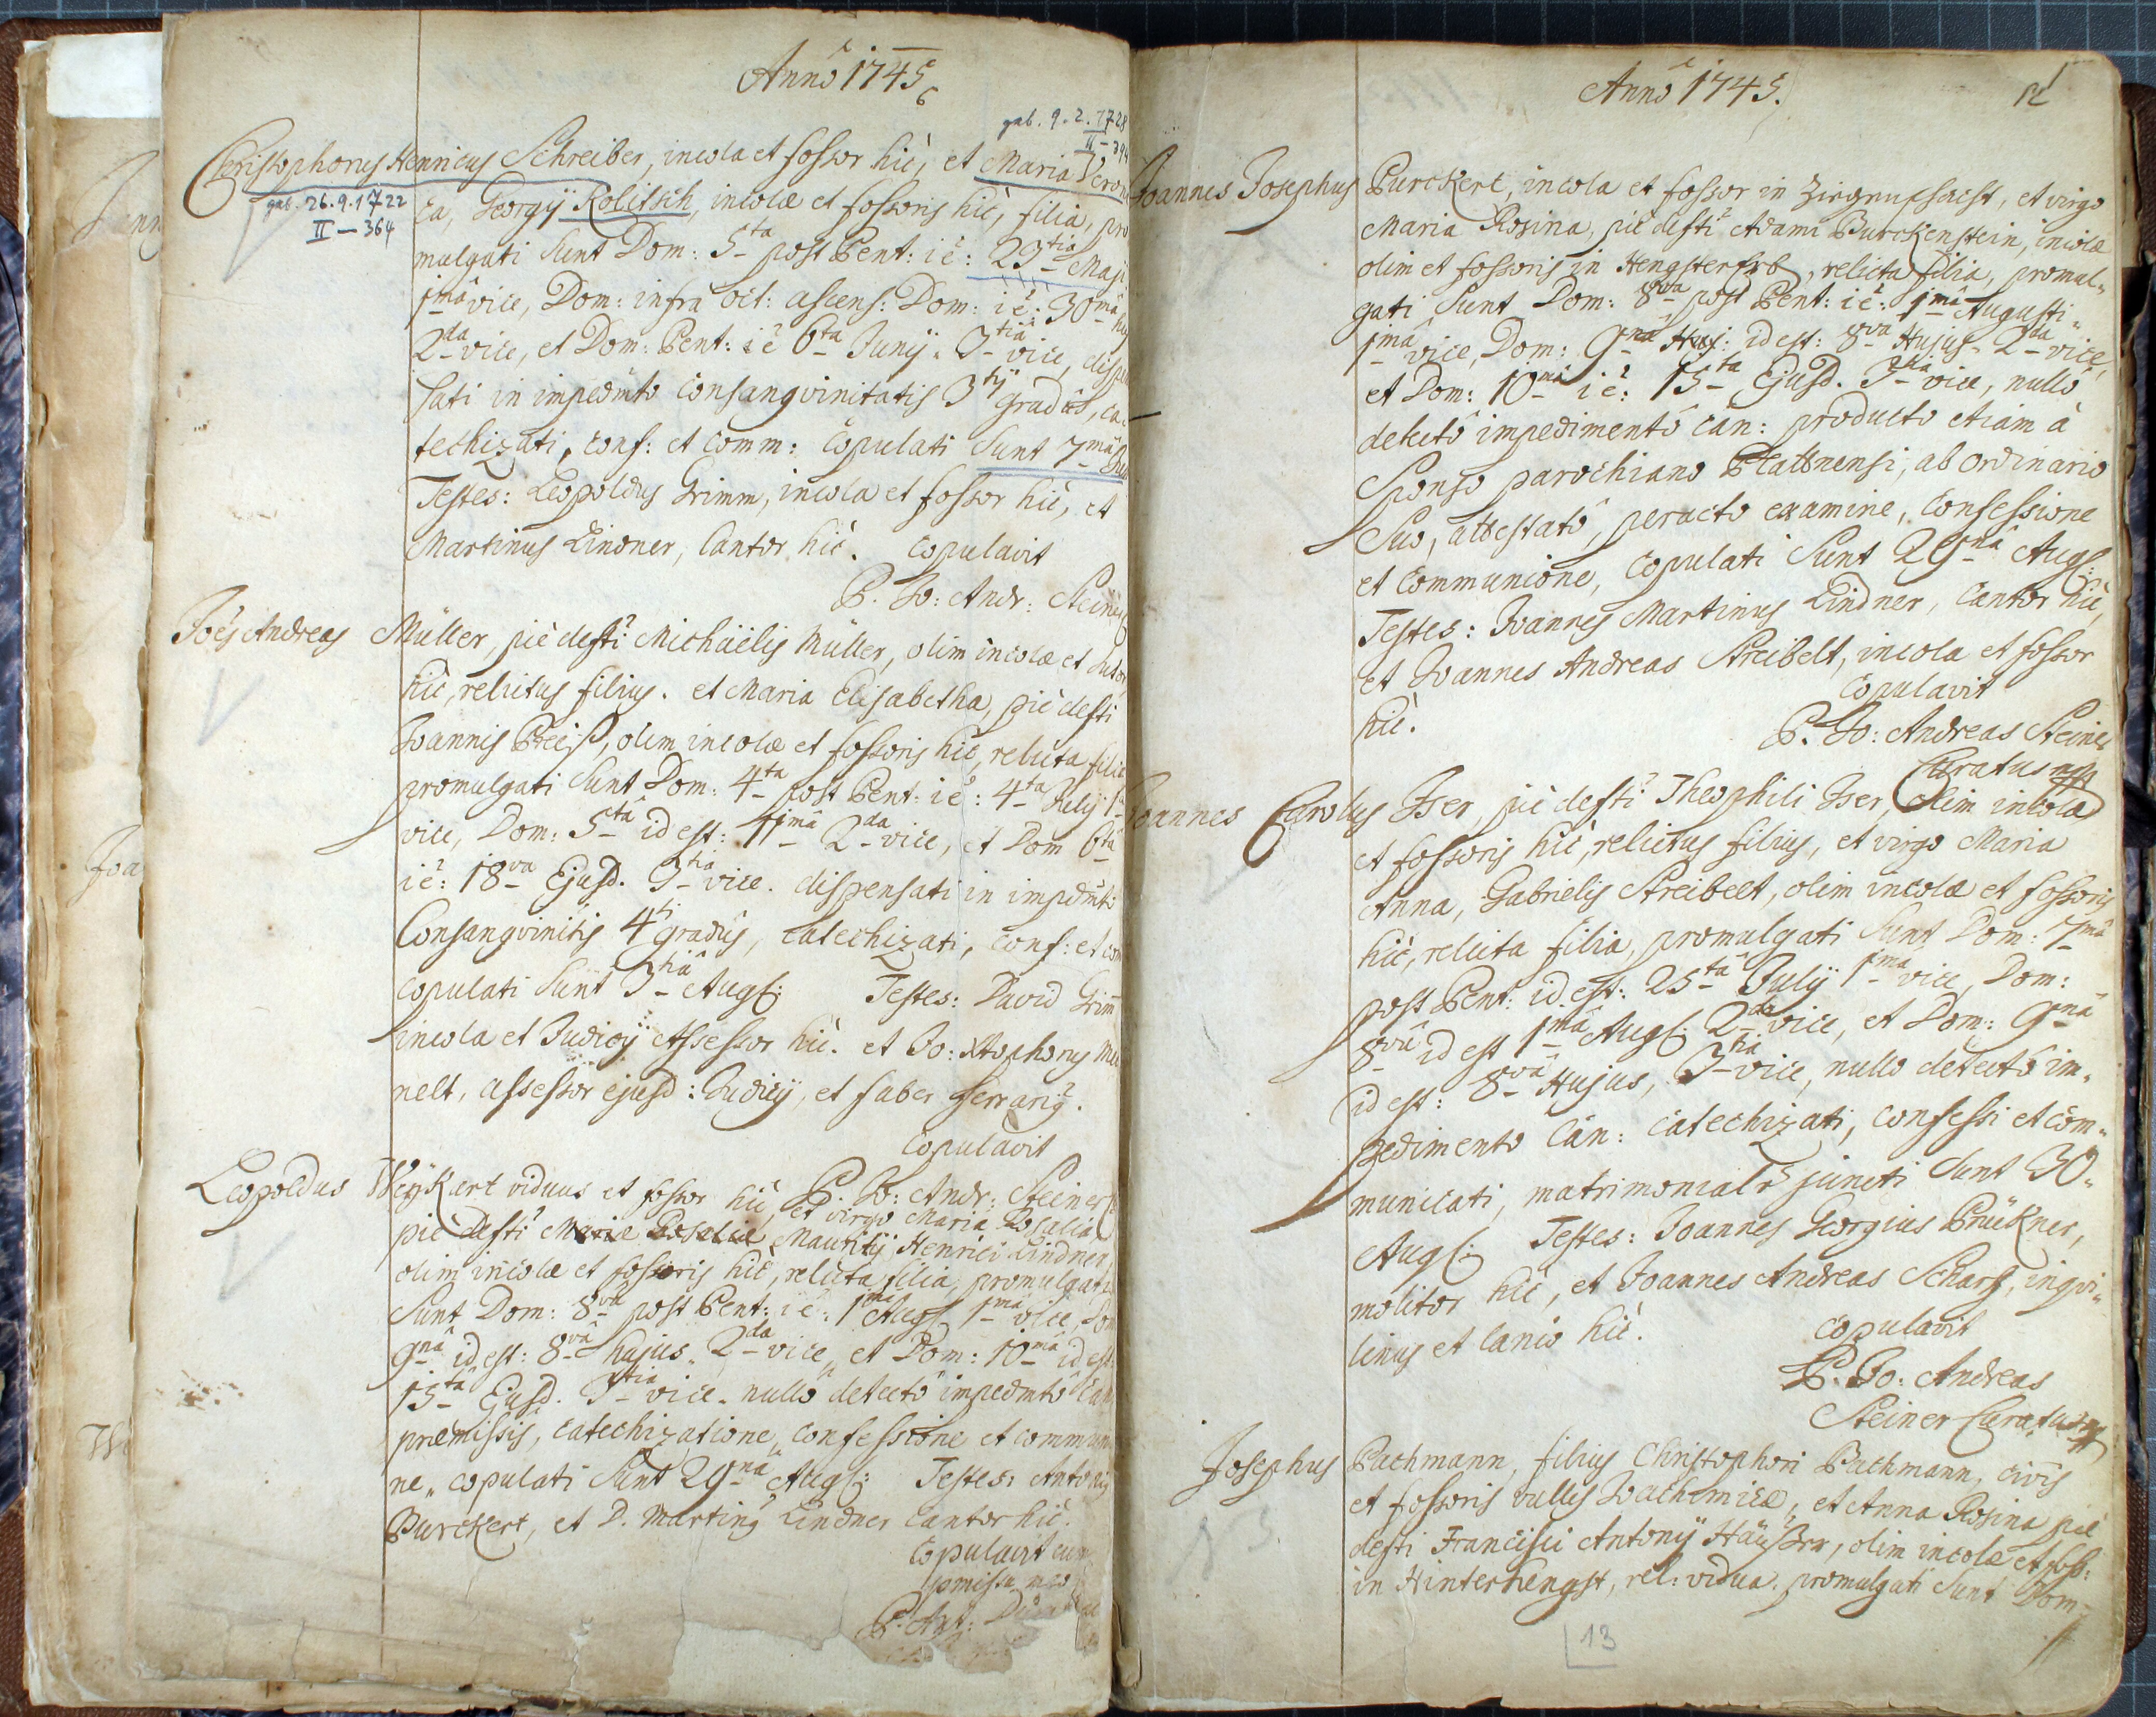 Anno 1745
6
gab. 9. 2. 1728
II – 394
Christophorus Henricus Schreiber, incola et fossor hic, et Maria Veroni
gab. 26.9.1722
II – 364
ca, Georgij Kolitsch, incolæ et fossoris hic, filia, pro
mulgati sunt Dom: 5ta post Pent: ie: 23tia Maji
1mâ vice, Dom: infra oct: ascens: Dom: ie: 30mâ huj
2da vice, et Dom: Pent: ie 6ta Junij. 3tiâ vice, dispen
sati in impedmto Consangvinitatis 3tij gradûs, ca-
techizati, conf: et comm: Copulati Sunt 7mâ
Testes: Leopoldus Grimm, incola et fossor hic, et
Martinus Lindner, Cantor hic. Copulavit
P. Jo: Andr: Steiner
Joës Andreas Müller, piè defti Michaëlis Müller, olim incolæ et Sutor
hic, relictus filius. et Maria Elisabetha, piè defti
Joannis Preiß, olim incolæ et fossoris hic, relicta filia
promulgati Sunt Dom: 4ta post Pent: ie: 4ta Julij 1
vice, Dom: 5tâ id est: 11mâ 2da vice, et Dom 6ta
ie: 18va Ejusd. 3tia vice. dispensati in impedmto
Consangvinitis 4ti gradûs, catechizati, conf: et com
copulati Sunt 3tiâ Aug: Testes: David Grimm
incola et Judicij Assessor hic. et Jo: Xtophorus
nelt, assessor ejusd: Judicij, et faber ferrarig.
Copulavit
P. Jo: Andr: Steiner
Leopoldus Weykart viduus et fossor hic, et virgo Maria Rosalia
piè defti Mariæ Rosaliæ Mauritij Henrici Lindner,
olim incolæ et fossoris hic, relicta filia, promulgati
Sunt Dom: 8va post Pent: ie: 1mâ Aug: 1mâ vice, Dom
9nâ id est: 8vâ hujus. 2da vice, et Dom: 10mâ id est:
15tâ Ejusd. 3tia vice. nullo detecto impedmto Can
præmissis, catechizatione, confessione et communio
ne, copulati Sunt 29nâ Aug: Testes: Antonig
Purckert, et D. Marting Lindner Cantor hic.
Copulavit cum
pmissu meo
P. Ant:
Anno 1745.
Joannes Josephus Purckert, incola et fossor in , et virgo
Maria Rosina, piè defti Adami Purckenstein, incolæ
olim et fossoris in Hengstererb, relicta filia, promul-
gati Sunt Dom: 8va post Pent: ie: 1mâ Augusti.
1mâ vice, Dom: 9nâ Huj: id est: 8va Hujus. 2da vice,
et Dom: 10mâ ie: 15ta Ejusd. 3tia vice, nullo
detectô impedimentô can: producto etiam à
Sponso parochiano Plattnensi, ab ordinario
Suo, attestatô, peracto examine, Confessione
et Communione, Copulati Sunt 29nâ Aug:
Testes: Joannes Martinus Lindner, Cantor hic,
et Joannes Andreas Streibelt, incola et fossor
hic. Copulavit
P. Jo: Andreas Steiner
Curatus mpp
Joannes Carolus Iser, piè defti Theophili Iser, olim incola
et fossoris hic, relictus filius, et virgo Maria
Anna, Gabrielis Streibelt, olim incolæ et fossoris
hic, relicta filia, promulgati Sunt Dom: 7mâ
post Pent: id est: 25tâ Julij 1ma vice, Dom:
8vâ id est 1mâ Aug: 2da vice, et Dom: 9nâ
id est: 8vâ Hujus, 3tia vice, nullo detectô im-
pedimento Can: catechizati, confessi et com-
municati, matrimonialr juncti Sunt 30.
Aug: Testes: Joannes Georgius Prükner,
molitor hic, et Joannes Andreas Scharf, ingvi-
linus et lanio hic. Copulavit
P. Jo: Andreas
Steiner Curatus mpp
Josephus Pachmann, filius Christophori Pachmann, civis
et fossoris vallis Joachimicæ, et Anna Rosina piè
defti Francisci Antonij Häußer, olim incolæ et foss:
in Hinterhengst, rel: vidua. promulgati Sunt Dom:
13